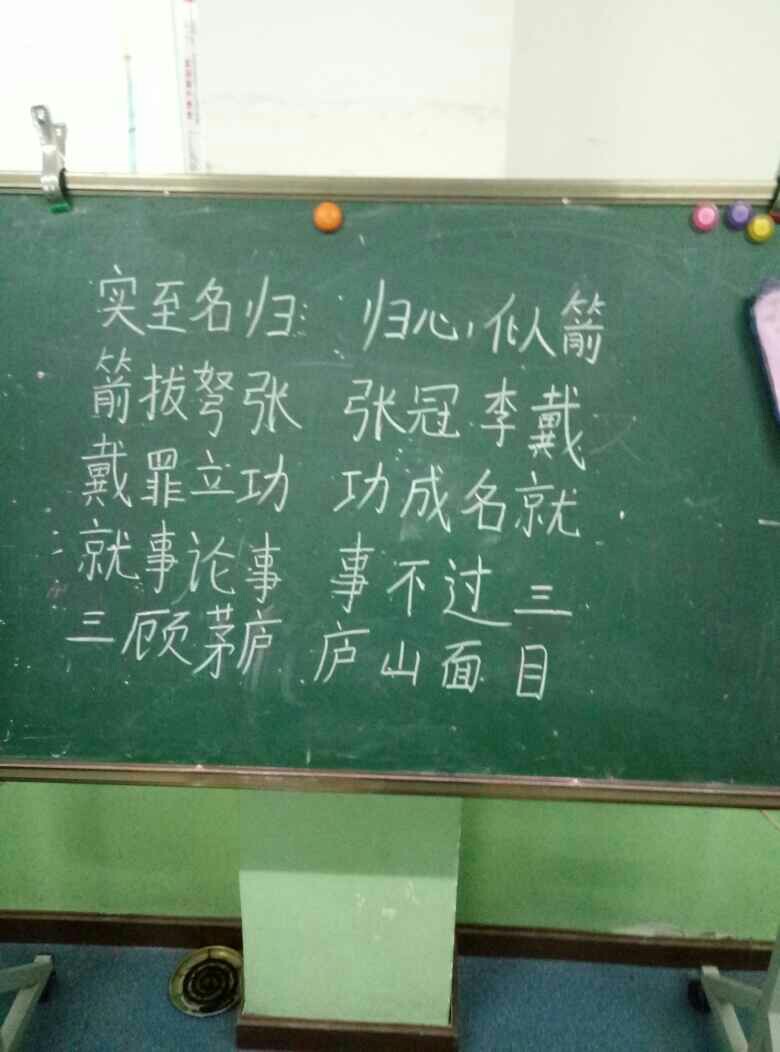 实至名归 归心似箭
箭拔弩张 张冠李戴
戴罪立功 功成名就
就事论事 事不过三
三顾茅庐 庐山面目